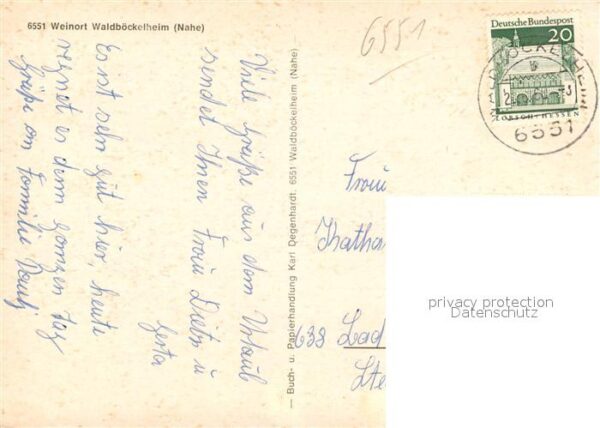 6551 Weinort Waldböckelheim (Nahe)
Viele Grüße aus dem Urlaub
sendet Ihnen Frau Dietz u
Gerta
Es ist sehr gut hier, heute
regnet es dem ganzen Tag
Grüße an Familie
Buch- u. Papierhandlung Karl Degenhardt. 6551 Waldböckelheim (Nahe)
6551
Deutsche Bundespost
20
LORSCH·HESSEN
WALDBÖCKELHEIM
6551
Frau
Katha
638 Lad
Ste
privacy protection
Datenschutz